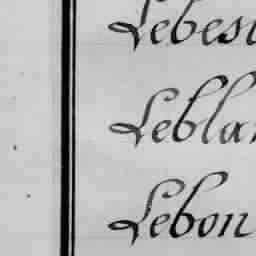 Lebes
Lebla
Lebon